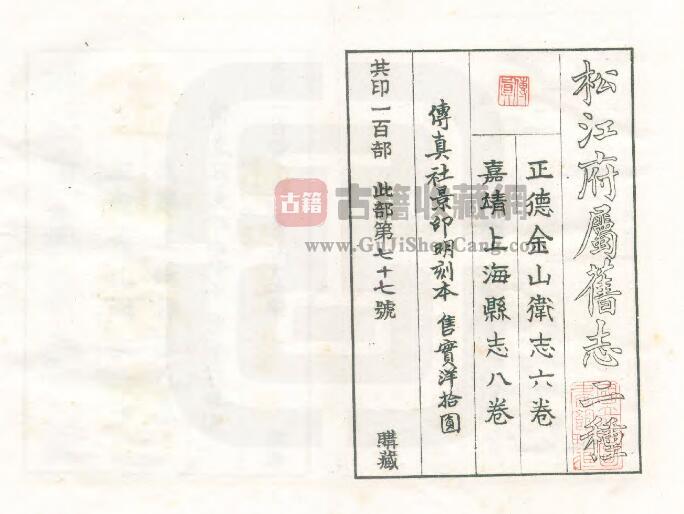 松江府屬舊志二種
正德金山衛志六卷
嘉靖上海縣志八卷
傳真
傳真社景印明刻本 售實洋拾圓
共印一百部 此部第七十七號 購藏
古籍 古籍收藏網
www.GuJiShouCang.com